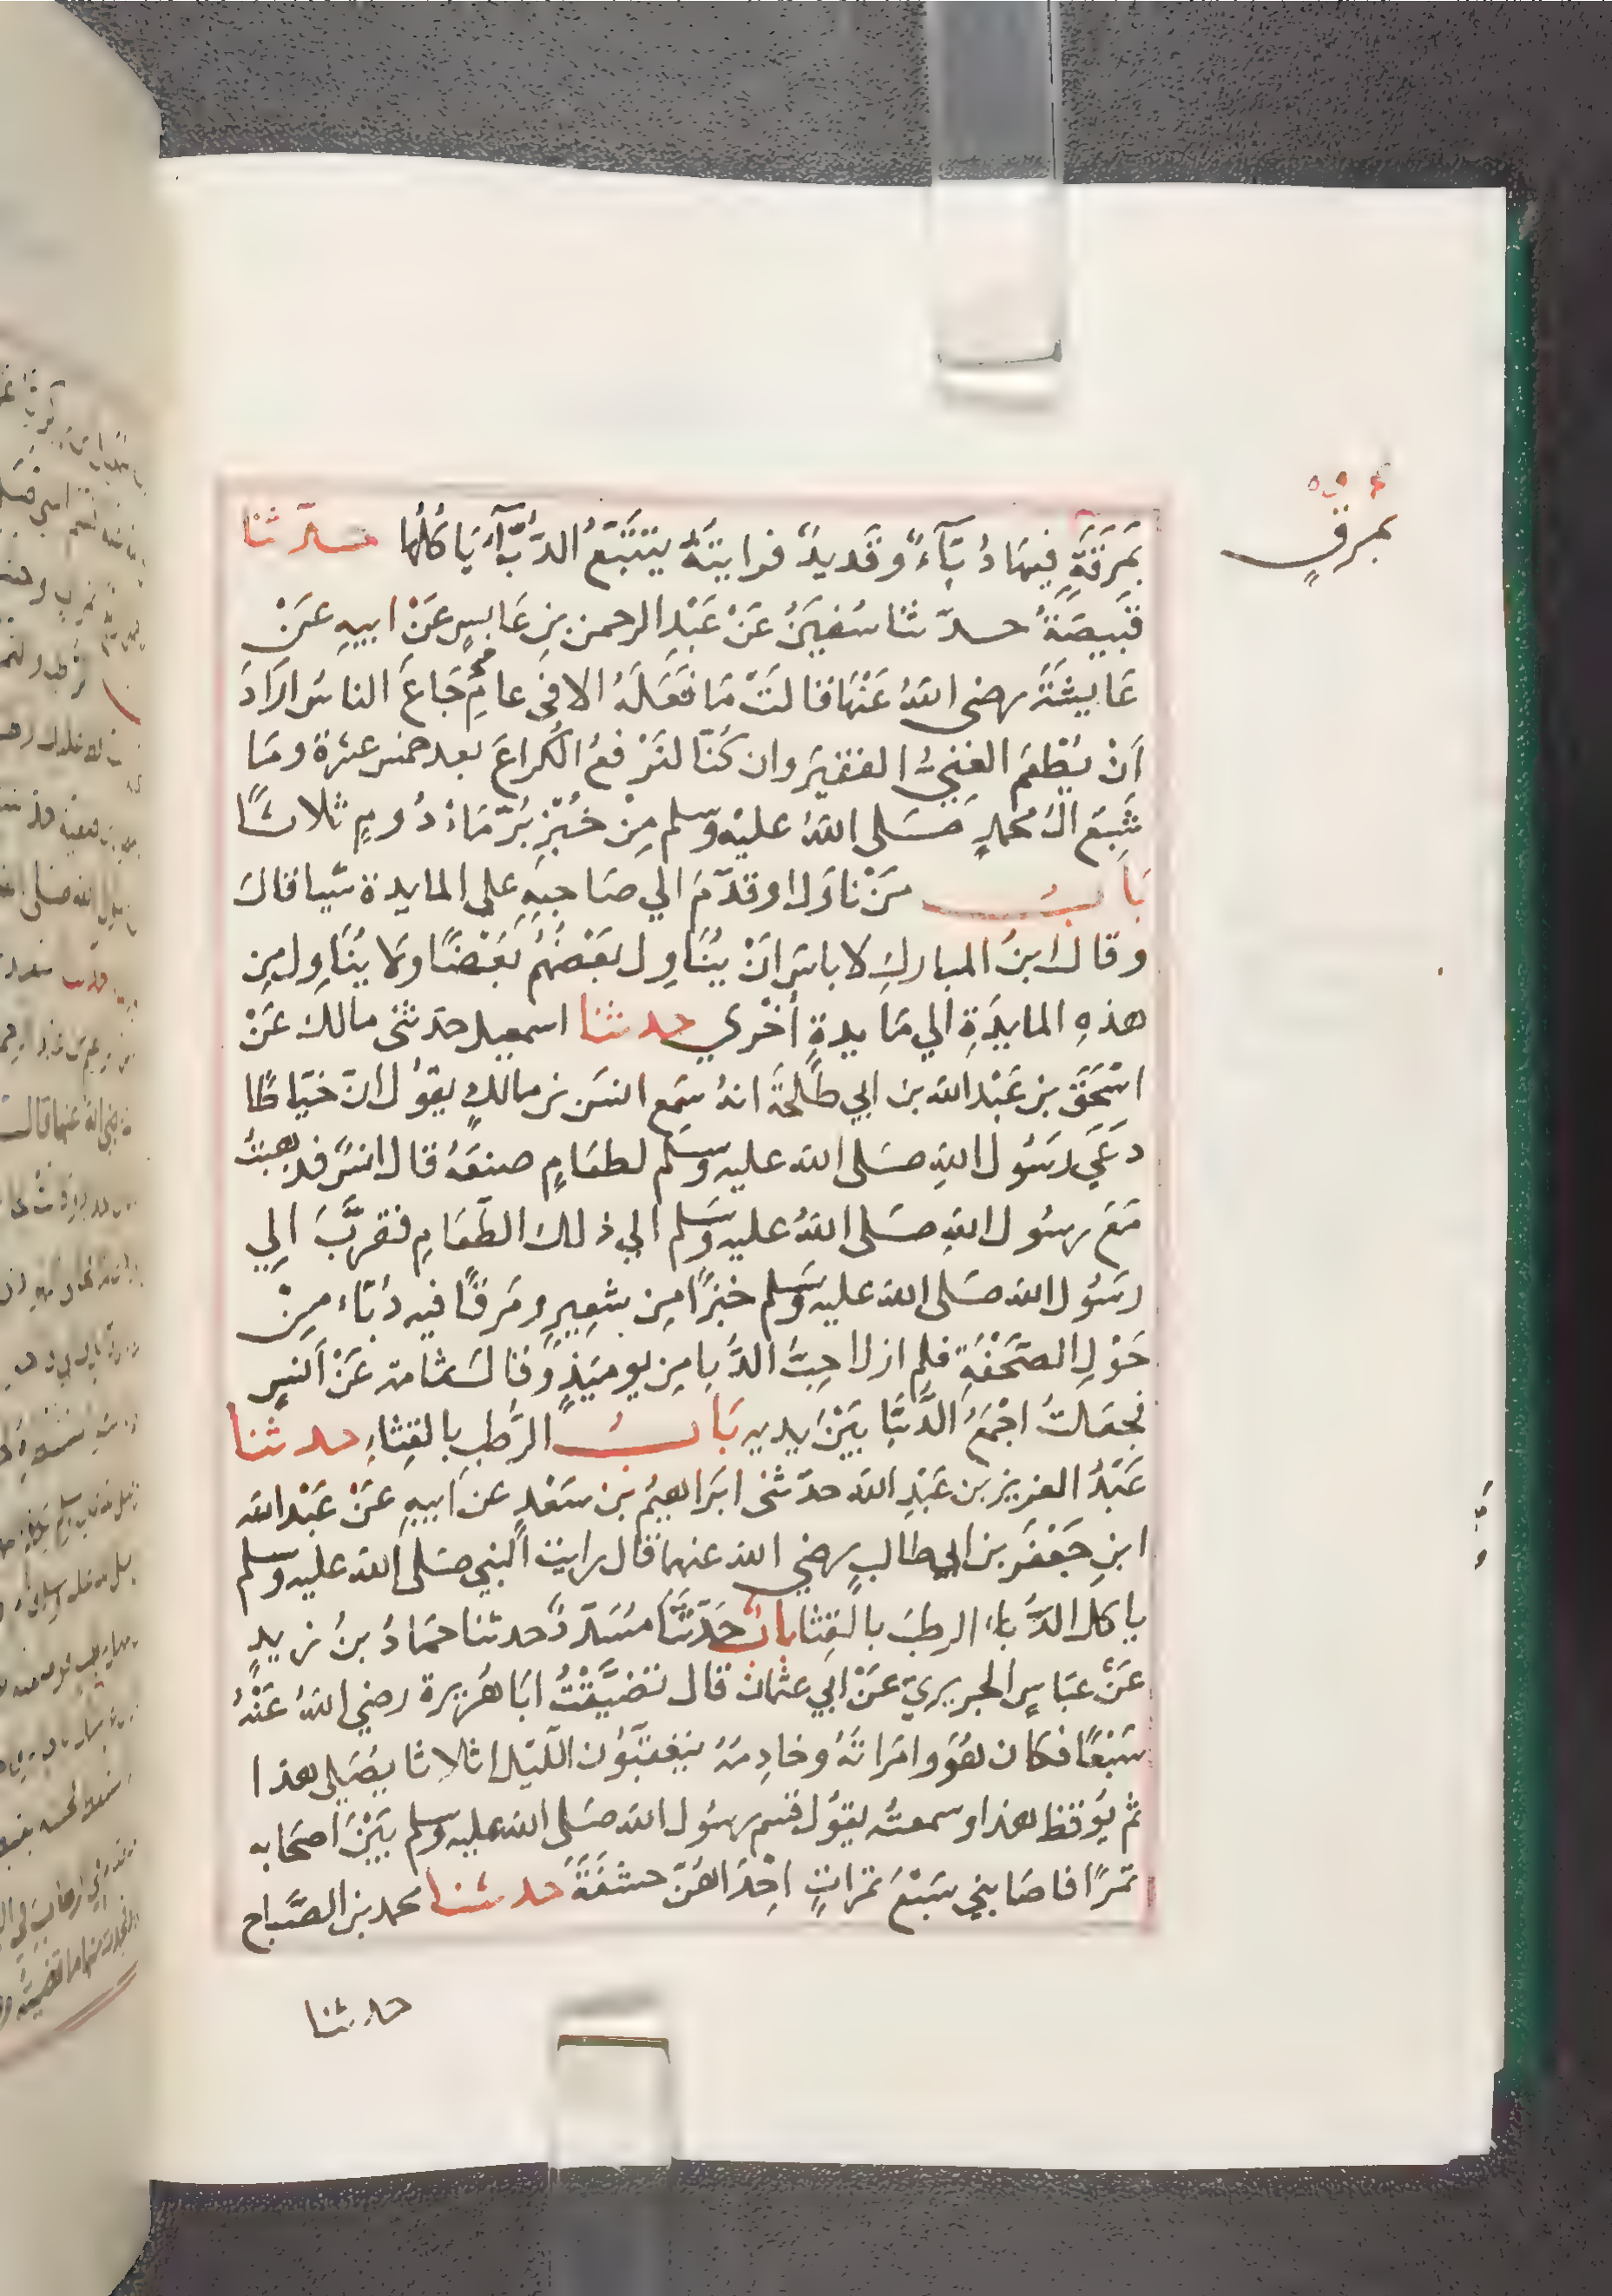 بمرقٍ
بِمَرَقَةٍ فِيهَا دُبَّآءٌ وقَديدٌ فرايتهُ يَتَتَبَّعُ الدُّبَّآءَ يَاكُلُها حدّثنا
قَبيصَةُ حدّثنا سُفيَنُ عَنْ عَبْدِ الرحمن بنِ عَابسٍ عَنْ ابيهِ عَنْ
عَايِشَةَ رضى اللهُ عَنْهَا قالَتْ مَا فَعَلَهُ الا في عامٍ جَاعَ الناسُ ارَادَ
اَنْ يُطْعِمَ الغنِيُّ الفقيَر وان كُنّا لنَرْفعُ الكُراعَ بعد خمسَ عشرة ومَا
شَبِعَ الُ محمدٍ صَلى اللهُ عليْه وسلم مِنْ خُبْزِ بُرٍّ مَادُومٍ ثلاثًا
بَابُ مَنْ ناوَلَ او قدّمَ الي صَاحِبِهِ على المايدة شيا قال
وقال ابنُ المباركِ لا باسَ انْ يُنَاوِل بَعْضُهُم بَعْضًا ولا يُنَاوِل مِن
هذهِ المايِدَةِ الي مَايدةٍ أخْري حدثنا اسمعيل حدثنى مالك عَنْ
اسْحَقَ بن عَبْد الله بن ابي طلحَةَ انهُ سَمِع انسَ بن مالكٍ يقوُل انّ خيّاطًا
دَعَي رَسُول اللهِ صَلى الله عليه وسَلم لطعَامٍ صنعَهُ قال انسٌ فذهبتُ
مَعَ رسُول اللهِ صَلى اللهُ عليه وسَلم الي ذلك الطَّعَامِ فقرَّبَ الِي
رسَوُل الله صَلى الله عليه وسَلم خبزًا مِن شعِيرٍ ومَرقًا فيه دُبّاء مِنْ
حَوْلِ الصَّحْفَةِ فلم ازل احِبُّ الدُّبا مِن يوميَذٍ وَقال ثمامة عَنْ اَنسٍ
فجعَلتُ اجْمَعُ الدُّبَّا بَيْنَ يديه بَابُ الرُّطَبِ بالقِثاءِ حدثنا
عَبْدُ العزيز بن عَبْدِ الله حدّثنى ابَراهيمُ بن سَعْدٍ عن اَبيهِ عَنْ عَبْد الله
ابنِ جَعْفَرِ بن ابي طالبٍ رضي الله عنهما قال رايت النبي صَلى الله عليه وسلم
ياكل الدُّباء الرطبَ بالقِثا بابٌ حَدّثنَا مُسَدّدٌ حدثنا حمَادُ بنُ زيدٍ
عَنْ عبَاسٍ الجريريّ عَنْ ابي عثمان قال تضيَّفْتُ ابَا هُريرة رضي اللهُ عَنْهُ
سَبْعًا فكان هُوَ وامَراتهُ وخادِمهُ يَعْتقبُون اللّيل اثلاثا يُصَلي هذا
ثم يوُقظ هذا وسمعتُه يقوُل قسم رسُول الله صَلى الله عليه وسلم بَيْنَ اصحَابه
تمرًا فاصَابني سَبْعُ تمراتٍ اِحْدَاهُنّ حشفَة حدثنا محمد بن الصَّباح
حدثنا